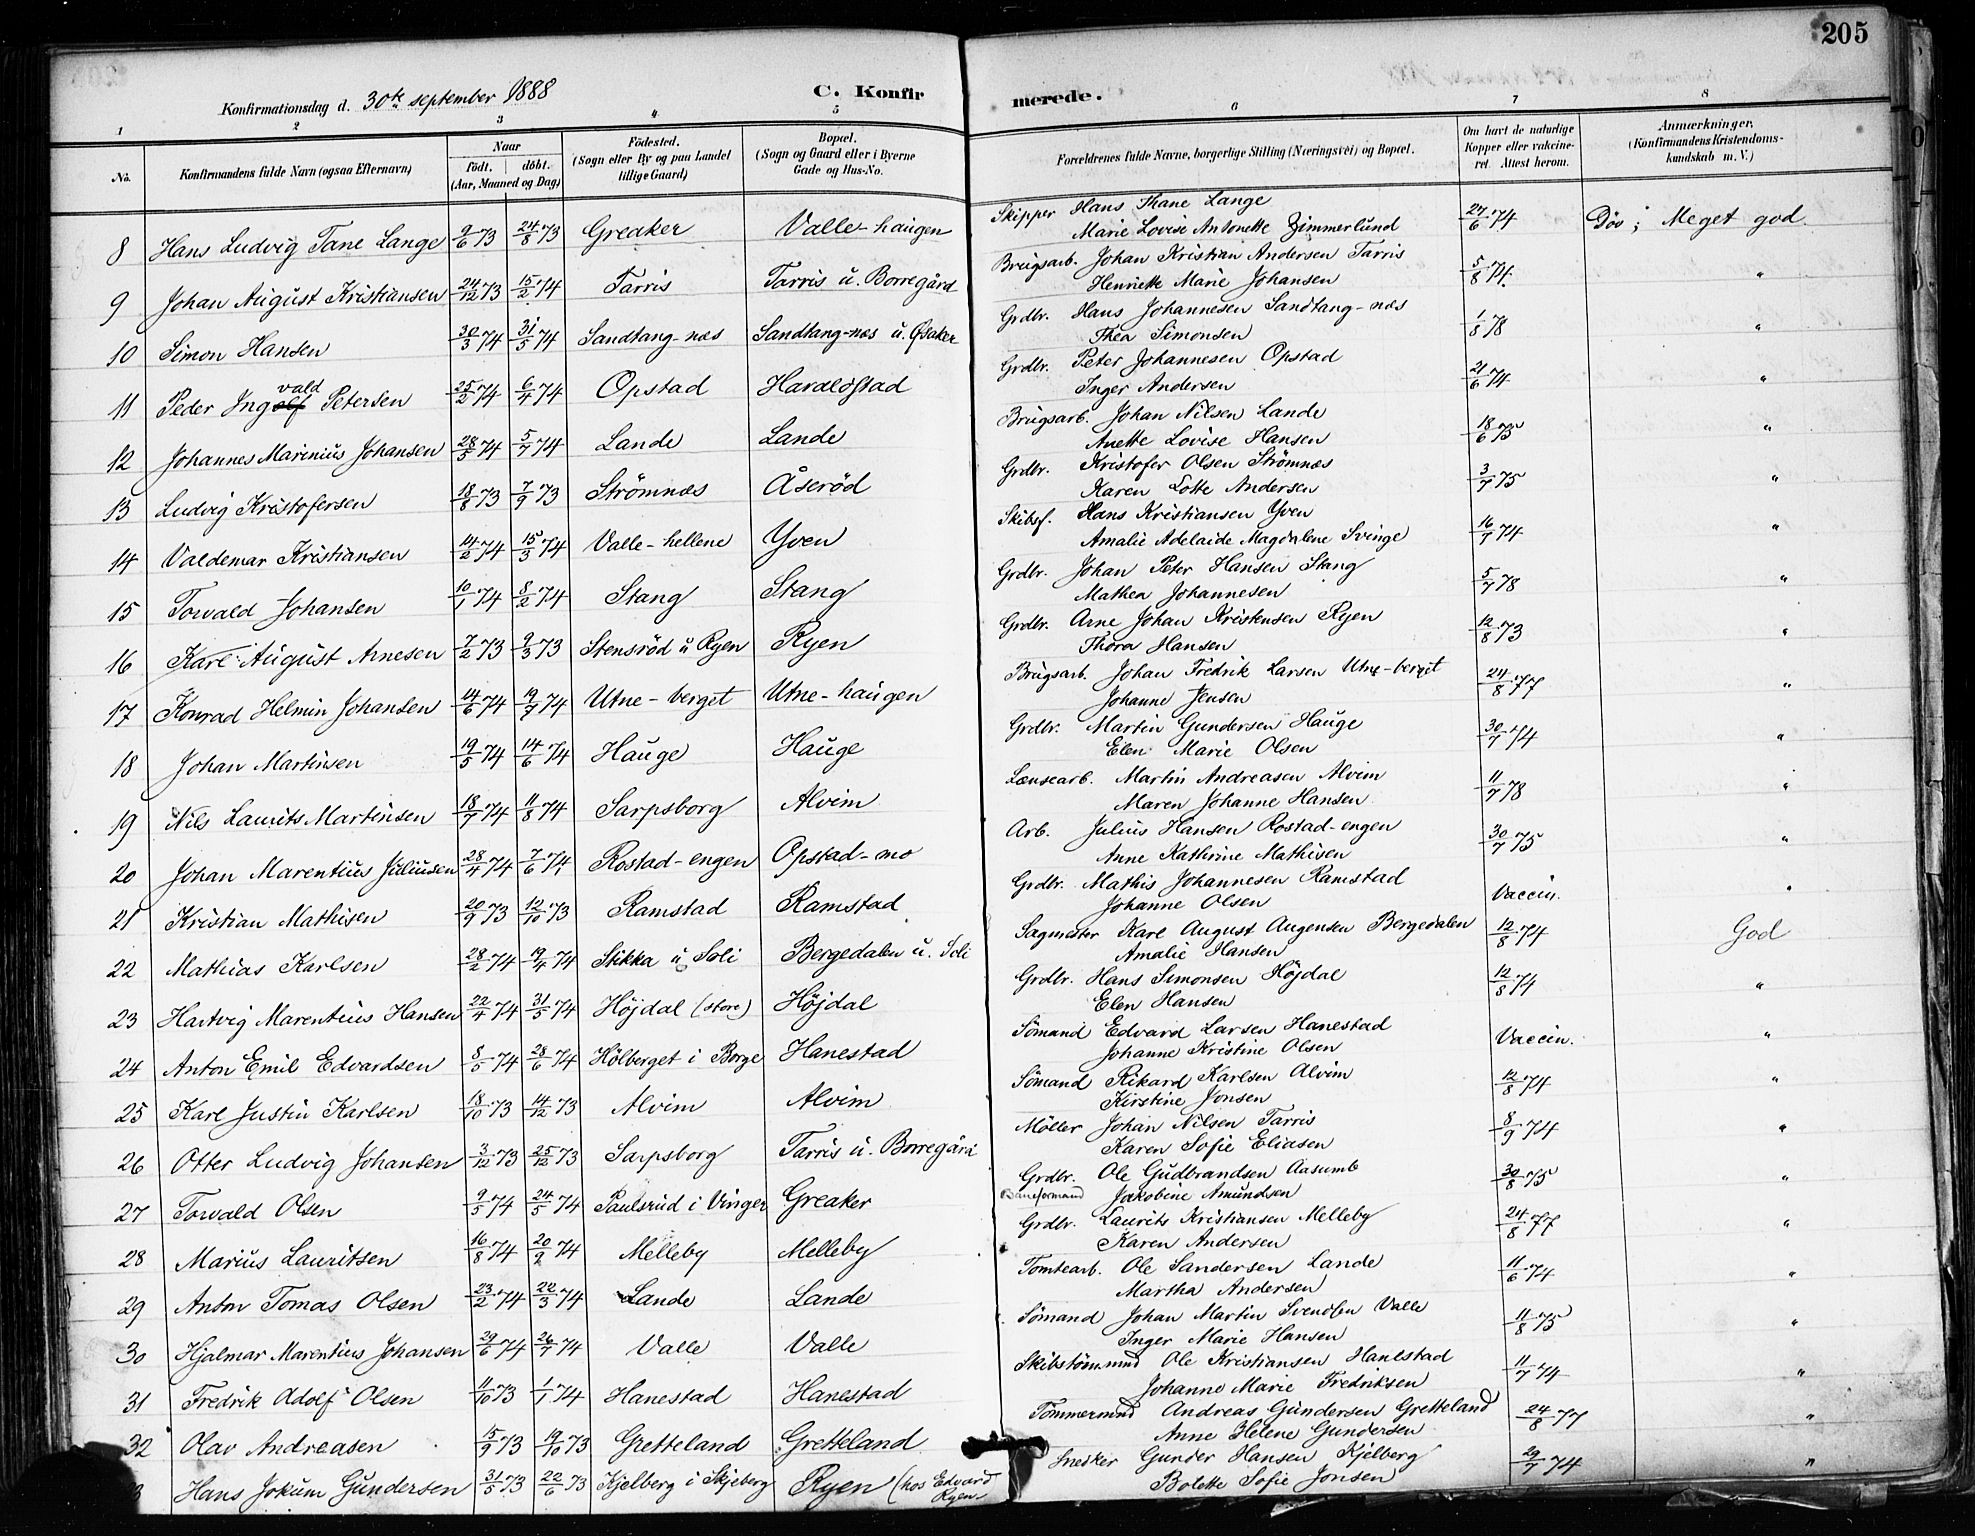 205
Konfirmationsdag d. 30te september 1888 C. Konfirmerede.
1 2 3 4 5 6 7 8
No. Konfirmandens fulde Navn (ogsaa Efternavn) Naar født. døbt. (Aar, Maaned og Dag) Födested. (Sogn eller By og paa Landet tillige Gaard) Bopæl. (Sogn og Gaard eller i Byerne Gade og Hus-No. Forældrenes fulde Navne, borgerlige Stilling (Næringsvei) og Bopæl. Om havt de naturlige Kopper eller vaccineret. Attest herom. Anmærkninger. (Konfirmandens Kristendomskundskab m. V.)
8 Hans Ludvig Tane Lange 9/6 73 24/8 73 Greaker Valle-haugen Skipper Hans Thane Lange
Marie Lovise Antonette Zimmerlund 27/6 74 Döv; Meget god
9 Johan August Kristiansen 24/12 73 15/2 74 Tarris Tarris u. Borregård Brugsarb. Johan Kristian Andersen Tarris
Henriette Marie Johansen 5/8 74. "
10 Simon Hansen 30/3 74 31/5 74 Sandtang-næs Sandtang-næs u. Øsaker Grdbr. Hans Johannesen Sandtang-næs
Thea Simonsen 1/8 78 "
11 Peder Ingolf vald Petersen 25/2 74 6/4 74 Opstad Haraldstad Grdbr. Peter Johannesen Opstad
Inger Andersen 21/6 74 "
12 Johannes Marinius Johansen 28/5 74 5/7 74 Lande Lande Brugsarb. Johan Nilsen Lande
Anette Lovise Hansen 18/6 75 "
13 Ludvig Kristofersen 18/8 73 7/9 73 Strömnæs Åseröd Grdbr. Kristofer Olsen Strömnæs
Karen Lotte Andersen 3/7 75 "
14 Valdemar Kristiansen 14/2 74 15/3 74 Valle-hellene Yven Skibsf. Hans Kristiansen Yven
Amalie Adelaide Magdalene Svinge 16/7 74 "
15 Torvald Johansen 10/1 74 8/2 74 Stang Stang Grdbr. Johan Peter Hansen Stang
Mathea Johannesen 5/7 78 "
16 Karl August Arnesen 7/2 73 9/3 73 Stensröd u Ryen Ryen Grdbr. Arne Johan Kristensen Ryen
Thora Hansen 12/8 73 "
17 Konrad Helmin Johansen 14/6 74 19/7 74 Utne-berget Utne-haugen Brugsarb. Johan Fredrik Larsen Utne-berget
Johanne Jensen 24/8 77 "
18 Johan Martinsen 19/5 74 14/6 74 Hauge Hauge Grdbr. Martin Gundersen Hauge
Elen Marie Olsen 30/7 74 "
19 Nils Laurits Martinsen 18/7 74 11/8 74 Sarpsborg Alvim Lænsearb. Martin Andreasen Alvim
Maren Johanne Hansen 11/7 78 "
20 Johan Marentius Juliusen 28/4 74 7/6 74 Rostad-engen Opstad-mo Arb. Julius Hansen Rostad-engen
Anne Kathrine Mathisen 30/7 75 "
21 Kristian Mathisen 20/9 73 12/10 73 Ramstad Ramstad Grdbr. Mathis Johannesen Ramstad
Johanne Olsen Vaccin. "
22 Mathias Karlsen 28/2 74 19/4 74 Stikka u Soli Bergedalen u. Soli Sagmester Karl August Augensen Bergedalen
Amalie Hansen 12/8 74 God
23 Hartvig Marentius Hansen 22/4 74 31/5 74 Höjdal (store) Höjdal Grdbr. Hans Simonsen Höjdal
Elen Hansen 12/8 74 "
24 Anton Emil Edvardsen 8/5 74 28/6 74 Hölberget i Borge Hanestad Sömand Edvard Larsen Hanestad
Johanne Kristine Olsen Vaccin. "
25 Karl Justin Karlsen 18/10 73 14/12 73 Alvim Alvim Sömand Rikard Karlsen Alvim
Kirstine Jonsen 12/8 74 "
26 Otter Ludvig Johansen 3/12 73 25/12 73 Sarpsborg Tarris u. Borregård Möller Johan Nilsen Tarris
Karen Sofie Eliasen 8/9 74 "
27 Torvald Olsen 9/5 74 24/5 74 Paulsrud i Vinger Greaker Grdbr. Ole Gudbrandsen Aasumb
Baneformand Jakobine Amundsen 30/8 75 "
28 Marius Lauritsen 16/8 74 20/9 74 Melleby Melleby Grdbr. Laurits Kristiansen Melleby
Karen Andersen 24/8 77 "
29 Anton Tomas Olsen 23/2 74 22/3 74 Lande Lande Tomtearb. Ole Sandersen Lande
Martha Andersen 11/6 74 "
30 Hjalmar Marentius Johansen 29/6 74 26/7 74 Valle Valle Sömand Johan Martin Svendsen Valle
Inger Marie Hansen 11/8 75 "
31 Fredrik Adolf Olsen 11/10 73 1/1 74 Hanestad Hanestad Skibstömmmd Ole Kristiansen Hanestad
Johanne Marie Fredriksen 11/7 74 "
32 Olav Andreasen 15/9 73 19/10 73 Gretteland Gretteland Tömmermnd Andreas Gundersen Gretteland
Anne Helene Gundersen 24/8 77 "
3 Hans Jokum Gundersen 31/5 73 22/6 73 Kjelberg i Skjeberg Ryen (hos Edvard Ryen Snedker Gunder Hansen Kjelberg
Bolette Sofie Jonsen 29/7 74 "